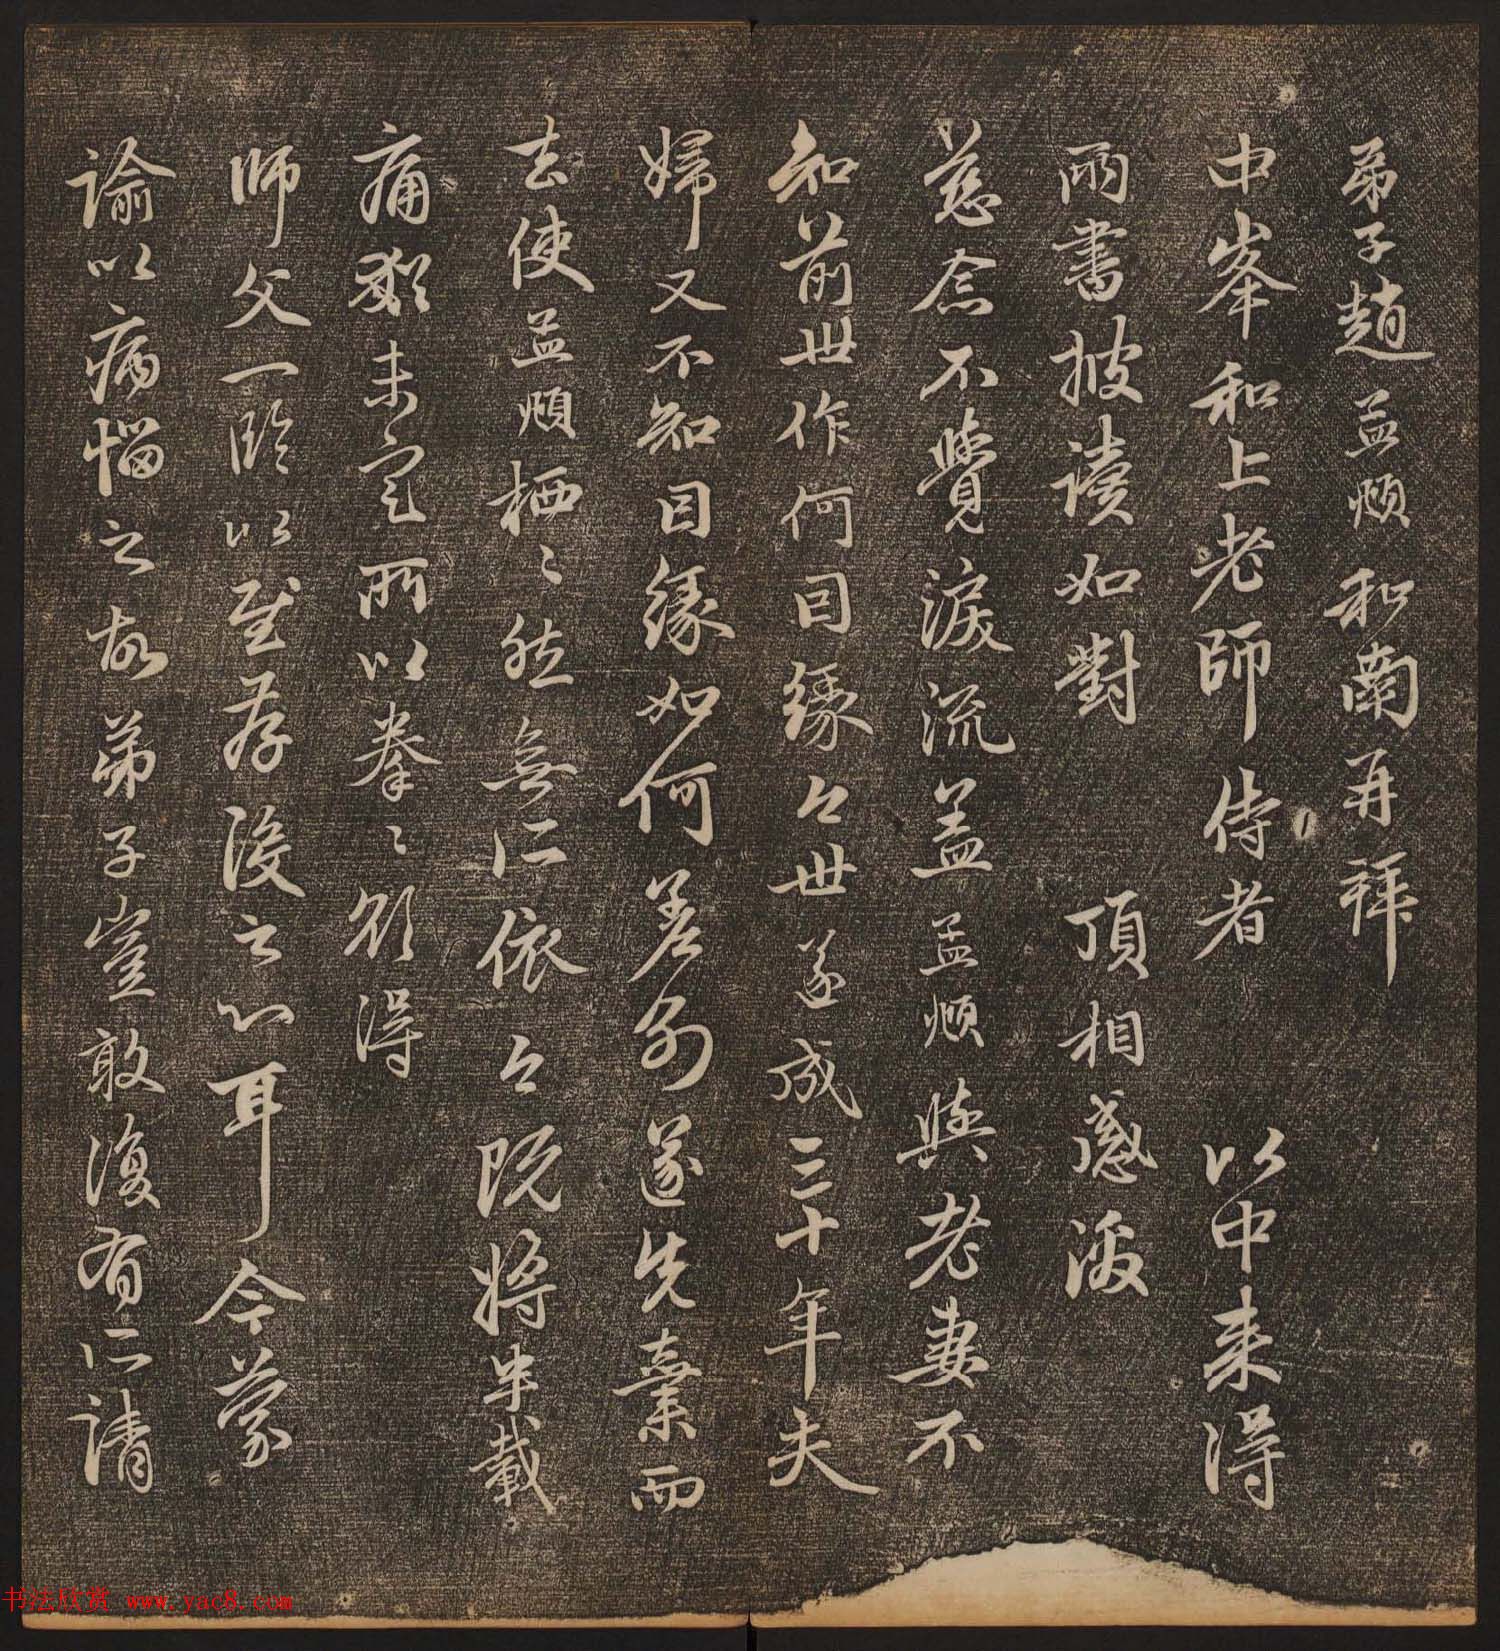 弟子趙孟頫和南再拜
中峯和上老師侍者 以中来得
兩書披讀如對 頂相感激
慈念不覺淚流盖孟頫與老妻不
知前世作何因緣今世遂成三十年夫
婦又不知因緣如何差別遂先棄而
去使孟頫栖〻然無所依今既將半載
痛猶未定所以拳〻欲得
師父一臨以至存没之心耳今蒙
諭以病惱之故弟子豈敢復有所請
书法欣赏 www.yac8.com